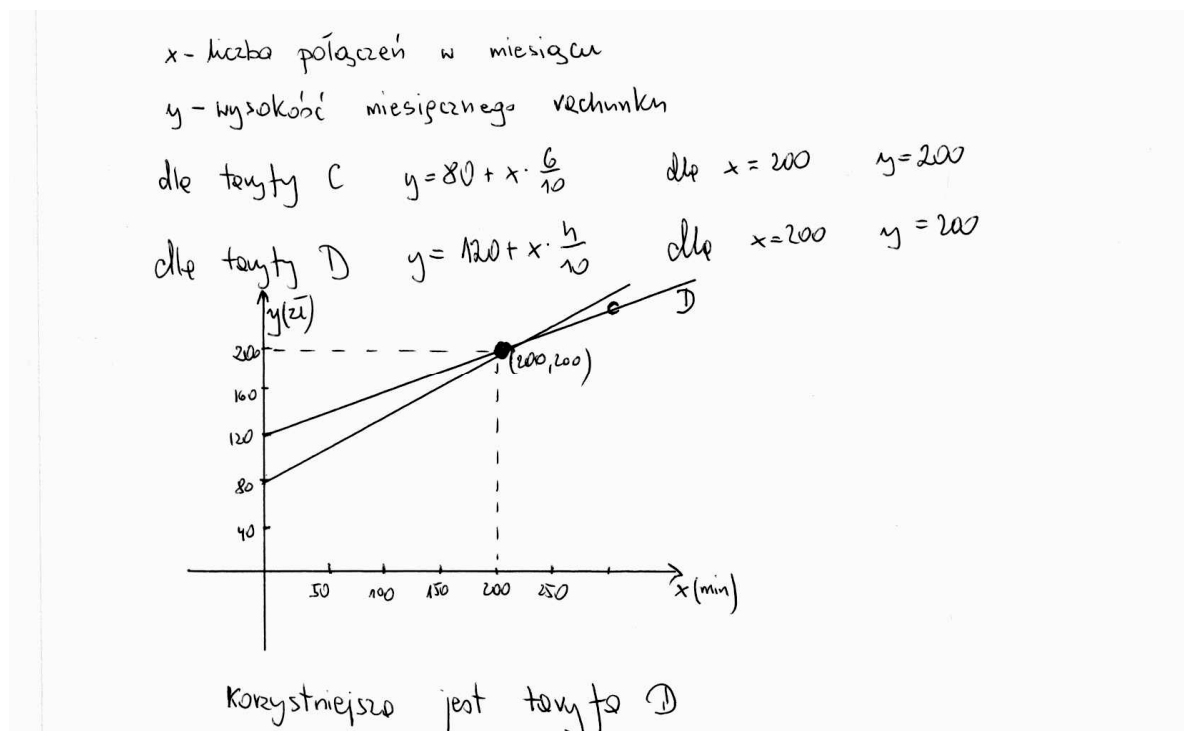 x - liczba połączeń w miesiącu
y - wysokość miesięcznego rachunku
dla taryfy C y = 80 + x · 6/10 dla x = 200 y = 200
dla taryfy D y = 120 + x · 4/10 dla x = 200 y = 200
y(zł)
D
200
(200,200)
160
120
80
40
50 100 150 200 250 x (min)
Korzystniejsza jest taryfa D